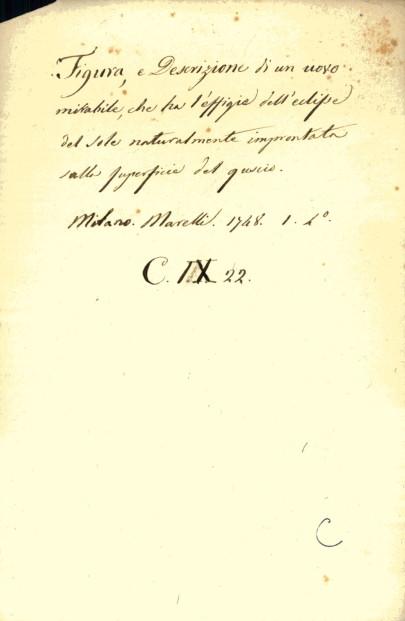 Figura, e Descrizione di un uovo
mirabile, che ha l'effigie dell'eclisse
del sole naturalmente improntata
sulla superficie del guscio.
Milano. Marelli. 1748. 1. 4°.
C. IX 22.
C